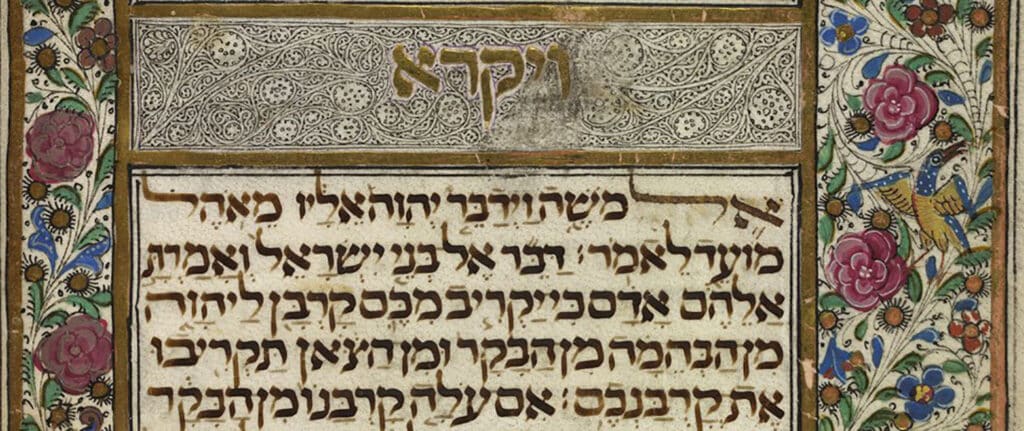 ויקרא
אל משה וידבר יהוה אליו מאהל
מועד לאמר׃ דבר אל בני ישראל ואמרת
אלהם אדם כי יקריב מכם קרבן ליהוה
מן הבהמה מן הבקר ומן הצאן תקריבו
את קרבנכם׃ אם עלה קרבנו מן הבקר